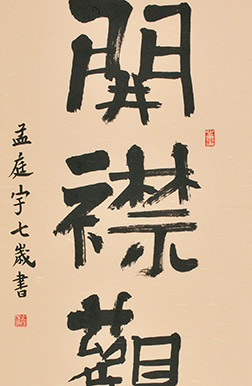 開襟觀
孟庭宇七歲書